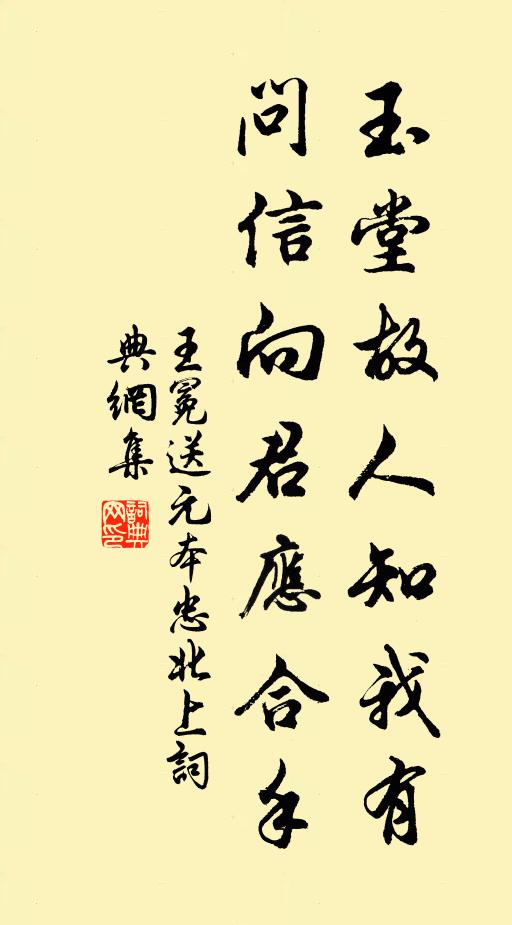 玉堂故人知我有
問信向君應合手
王冕送元本忠北上詞
典網集
詞典
网印